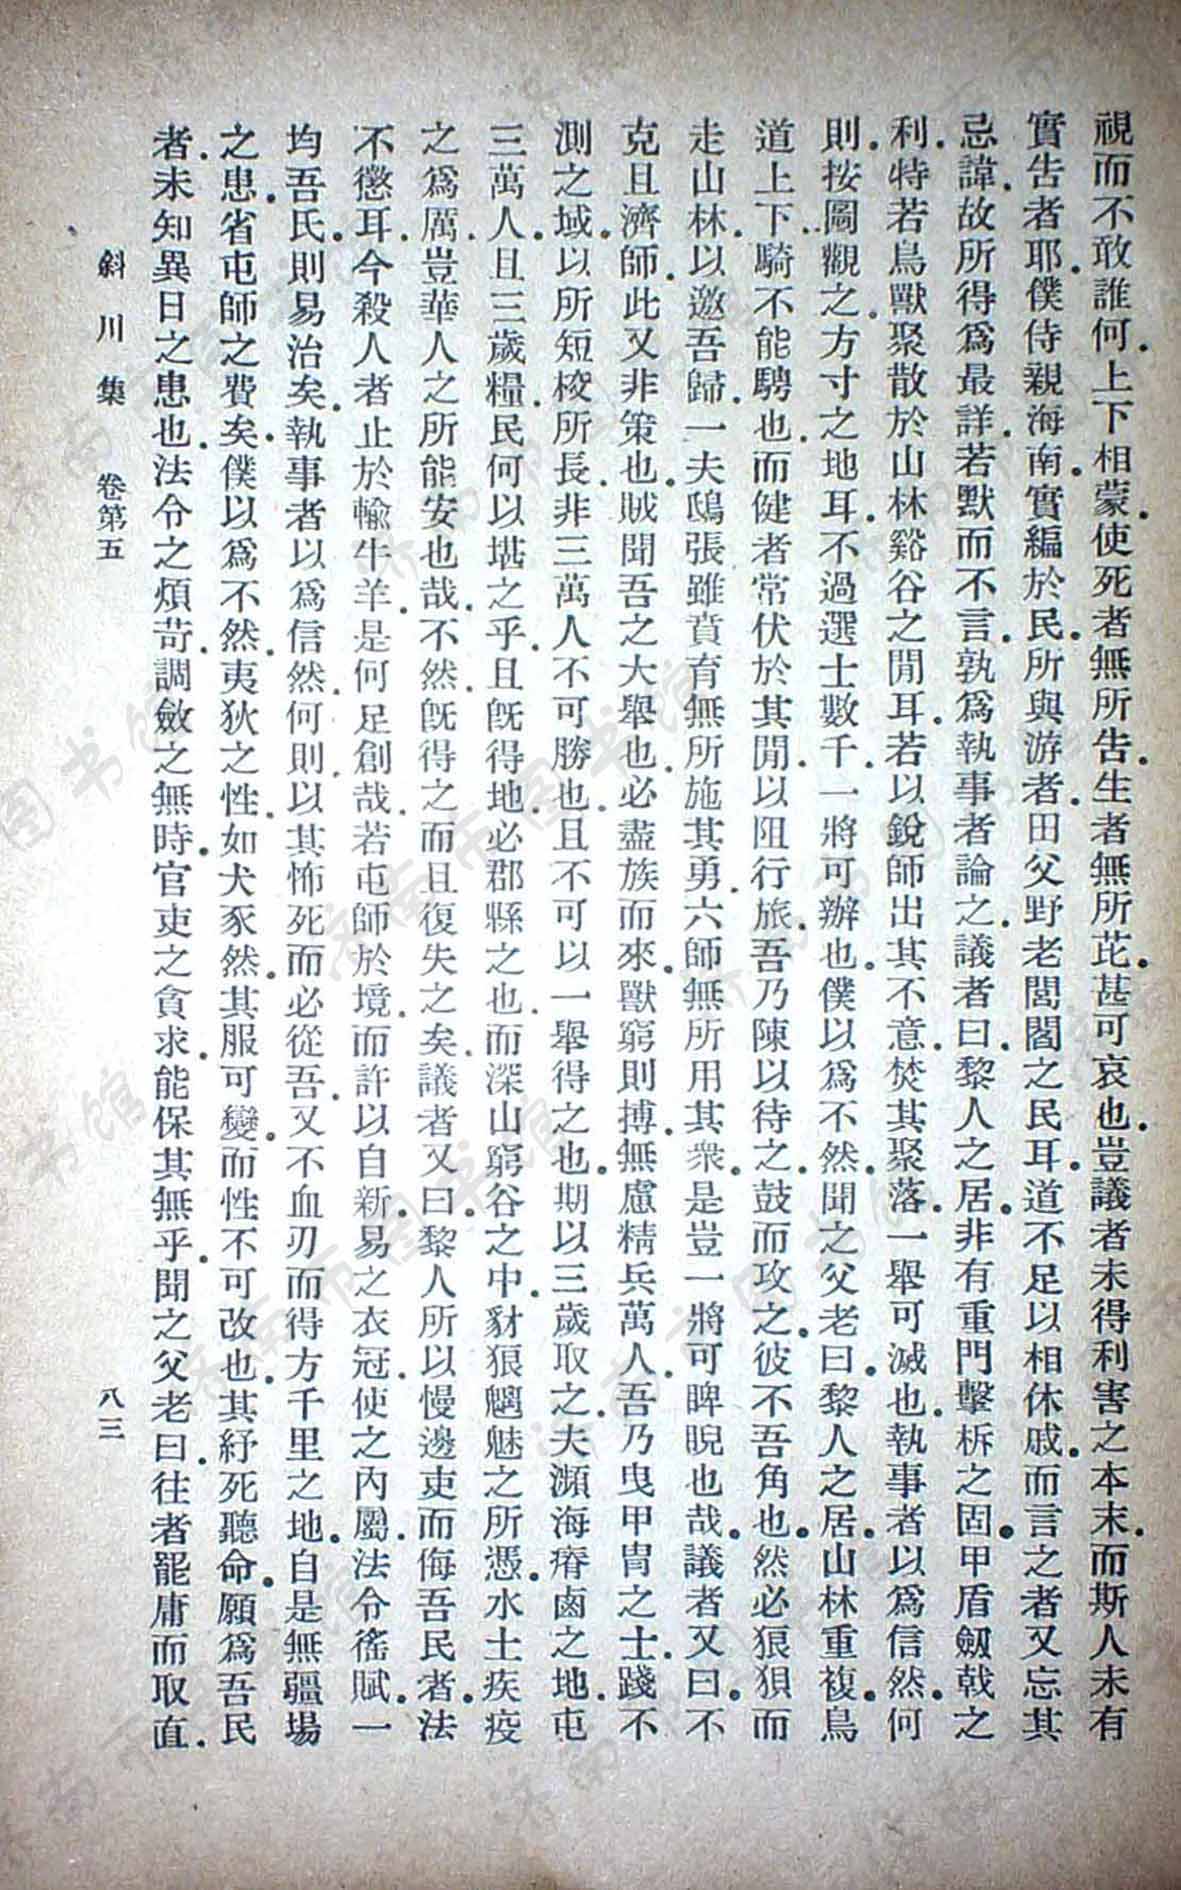 視而不敢誰何.上下相蒙.使死者無所告.生者無所芘.甚可哀也.豈議者未得利害之本末.而斯人未有
實告者耶.僕侍親海南.實編於民.所與游者.田父野老閭閻之民耳.道不足以相休戚.而言之者又忘其
忌諱.故所得爲最詳.若默而不言.孰爲執事者論之.議者曰.黎人之居.非有重門擊柝之固.甲盾劔戟之
利.特若鳥獸聚散於山林谿谷之閒耳.若以銳師出其不意.焚其聚落.一舉可滅也.執事者以爲信然.何
則.按圖觀之.方寸之地耳.不過選士數千.一將可辦也.僕以爲不然.聞之父老曰.黎人之居.山林重複.鳥
道上下.騎不能騁也.而健者常伏於其閒.以阻行旅.吾乃陳以待之.鼓而攻之.彼不吾角也.然必狼狽而
走山林.以邀吾歸.一夫鴟張.雖賁育無所施其勇.六師無所用其衆.是豈一將可睥睨也哉.議者又曰.不
克且濟師.此又非策也.賊聞吾之大舉也.必盡族而來.獸窮則搏.無慮精兵萬人.吾乃曳甲胄之士.踐不
測之域.以所短校所長.非三萬人不可勝也.且不可以一舉得之也.期以三歲取之.夫瀕海瘠鹵之地.屯
三萬人.且三歲糧.民何以堪之乎.且旣得地.必郡縣之也.而深山窮谷之中.豺狼魑魅之所憑.水土疾疫
之爲厲.豈華人之所能安也哉.不然.旣得之而且復失之矣.議者又曰.黎人所以慢邊吏而侮吾民者.法
不懲耳.今殺人者止於輸牛羊.是何足創哉.若屯師於境.而許以自新.易之衣冠.使之內屬.法令徭賦.一
均吾氏.則易治矣.執事者以爲信然.何則.以其怖死而必從吾.又不血刃而得方千里之地.自是無疆場
之患.省屯師之費矣.僕以爲不然.夷狄之性.如犬豕然.其服可變.而性不可改也.其紓死聽命.願爲吾民
者.未知異日之患也.法令之煩苛.調斂之無時.官吏之貪求.能保其無乎.聞之父老曰.往者罷庸而取直.
斜川集 卷第五 八三